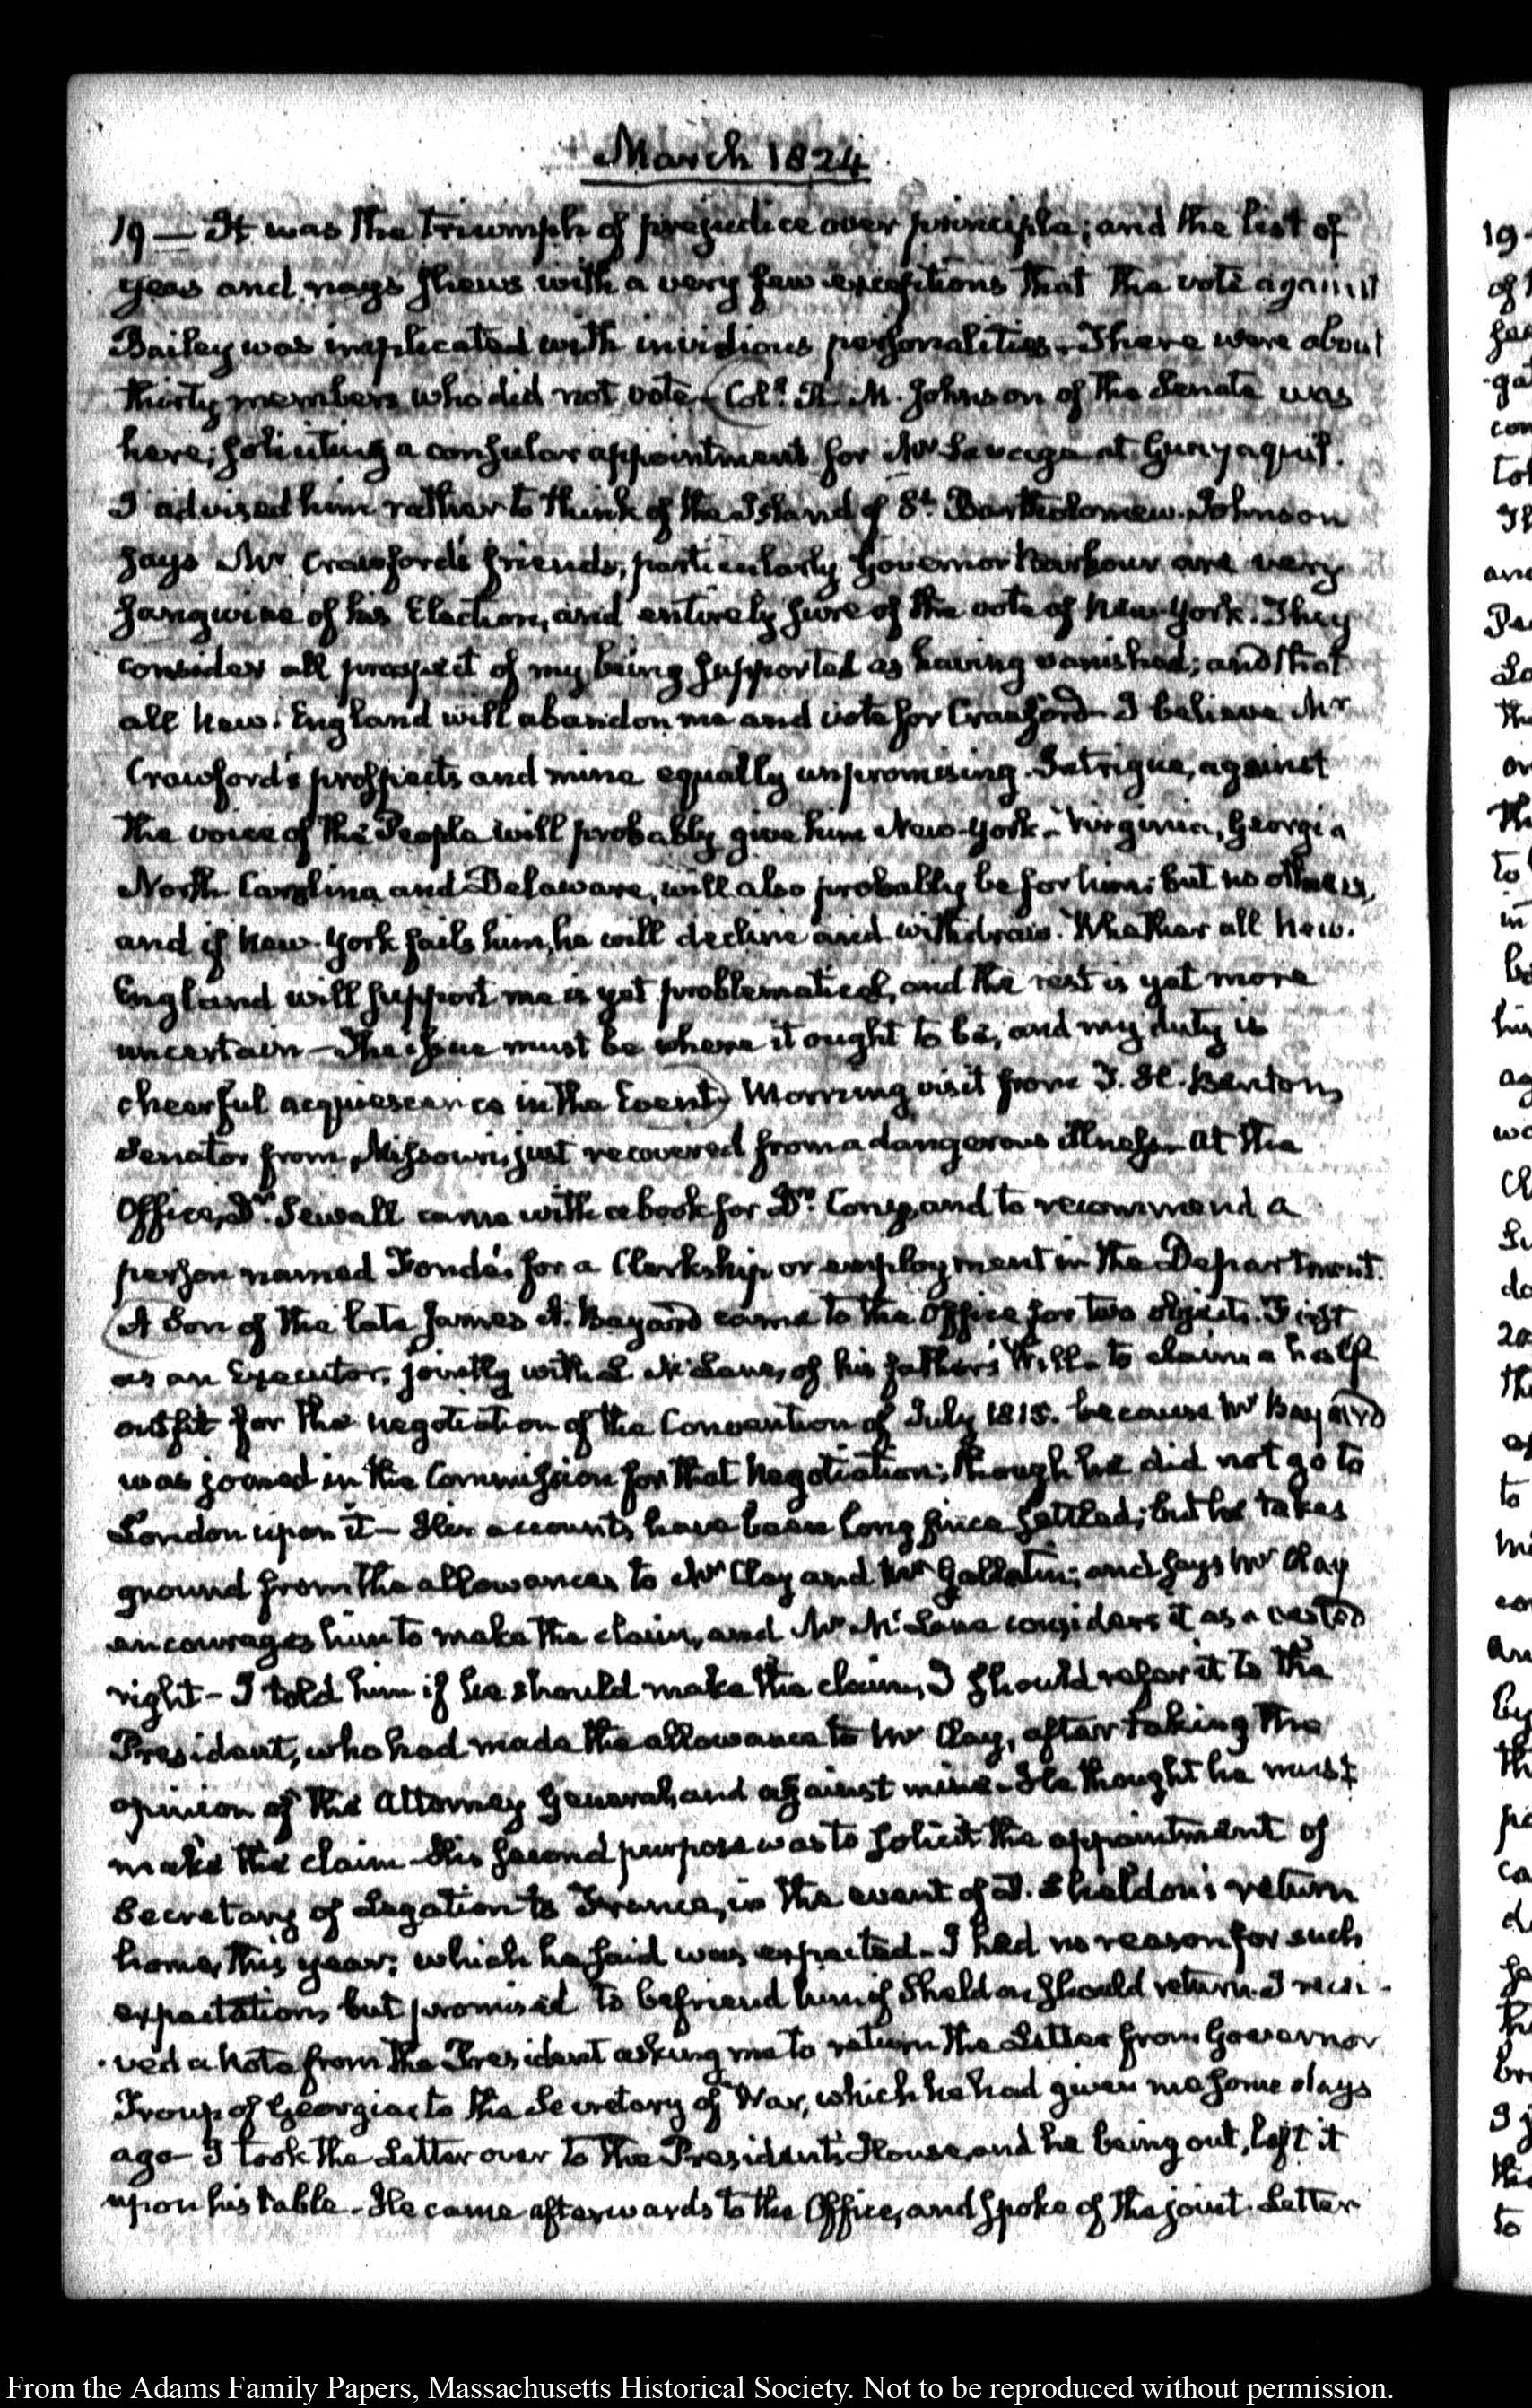 March 1824
19 — It was the triumph of prejudice over principle; and the list of
yeas and nays shews with a very few exceptions that the vote against
Bailey was implicated with invidious personalities. There were about
thirty members who did not vote. Coll. R. M. Johnson of the Senate was
here; soliciting a consular appointment for Mr Savage at Guayaquil.
I advised him rather to think of the Island of St. Bartholomew. Johnson
says Mr Crawford's friends, particularly Governor Barbour are very
sanguine of his Election, and entirely sure of the vote of New-York. They
consider all prospect of my being supported as having vanished; and that
all New-England will abandon me and vote for Crawford. I believe Mr
Crawford's prospects and mine equally unpromising. Intrigue, against
the voice of the People will probably give him New-York. Virginia, Georgia
North Carolina and Delaware, will also probably be for him; but no others,
and if New-York fails him, he will decline and withdraw. Whether all New-
England will support me is yet problematical, and the rest is yet more
uncertain — The issue must be where it ought to be, and my duty is
cheerful acquiescence in the Event. Morning visit from T. H. Benton,
Senator from Missouri, just recovered from a dangerous illness. At the
Office, Dr. Sewall came with a book for Dr. Cony, and to recommend a
person named Fondé, for a Clerkship or employment in the Department.
A Son of the late James A. Bayard came to the Office for two objects. First
as an Executor, jointly with L. McLane, of his father's Will — to claim a half
outfit for the negotiation of the Convention of July 1815. because Mr Bayard
was joined in the Commission for that Negotiation; though he did not go to
London upon it — His accounts have been long since settled; but he takes
ground from the allowances to Mr Clay and Mr Gallatin; and says Mr Clay
encourages him to make the claim, and Mr McLane considers it as a vested
right — I told him if he should make the claim, I should refer it to the
President, who had made the allowance to Mr Clay, after taking the
opinion of the Attorney General, and against mine. He thought he must
make the claim — His second purpose was to solicit the appointment of
Secretary of Legation to France, in the event of D. Sheldon's return
home, this year; which he said was expected. I had no reason for such
expectation, but promised to befriend him if Sheldon should return. I recei-
-ved a Note from the President asking me to return the Letter from Governor
Troup of Georgia, to the Secretary of War, which he had given me some days
ago — I took the Letter over to the President's House, and he being out, left it
upon his table. He came afterwards to the Office, and spoke of the joint Letter
From the Adams Family Papers, Massachusetts Historical Society. Not to be reproduced without permission.